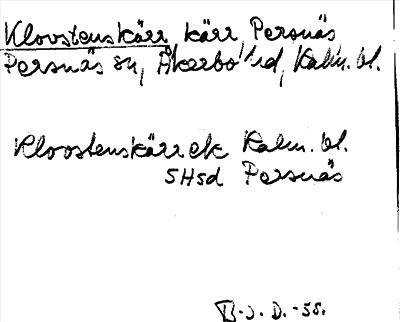 Kloostenskärr kärr, Persnäs
Persnäs sn, Åkerbo hd, Kalm. bl.
Kloostenskärr ek Kalm. bl.
SHsd Persnäs
B.J.D.-55.